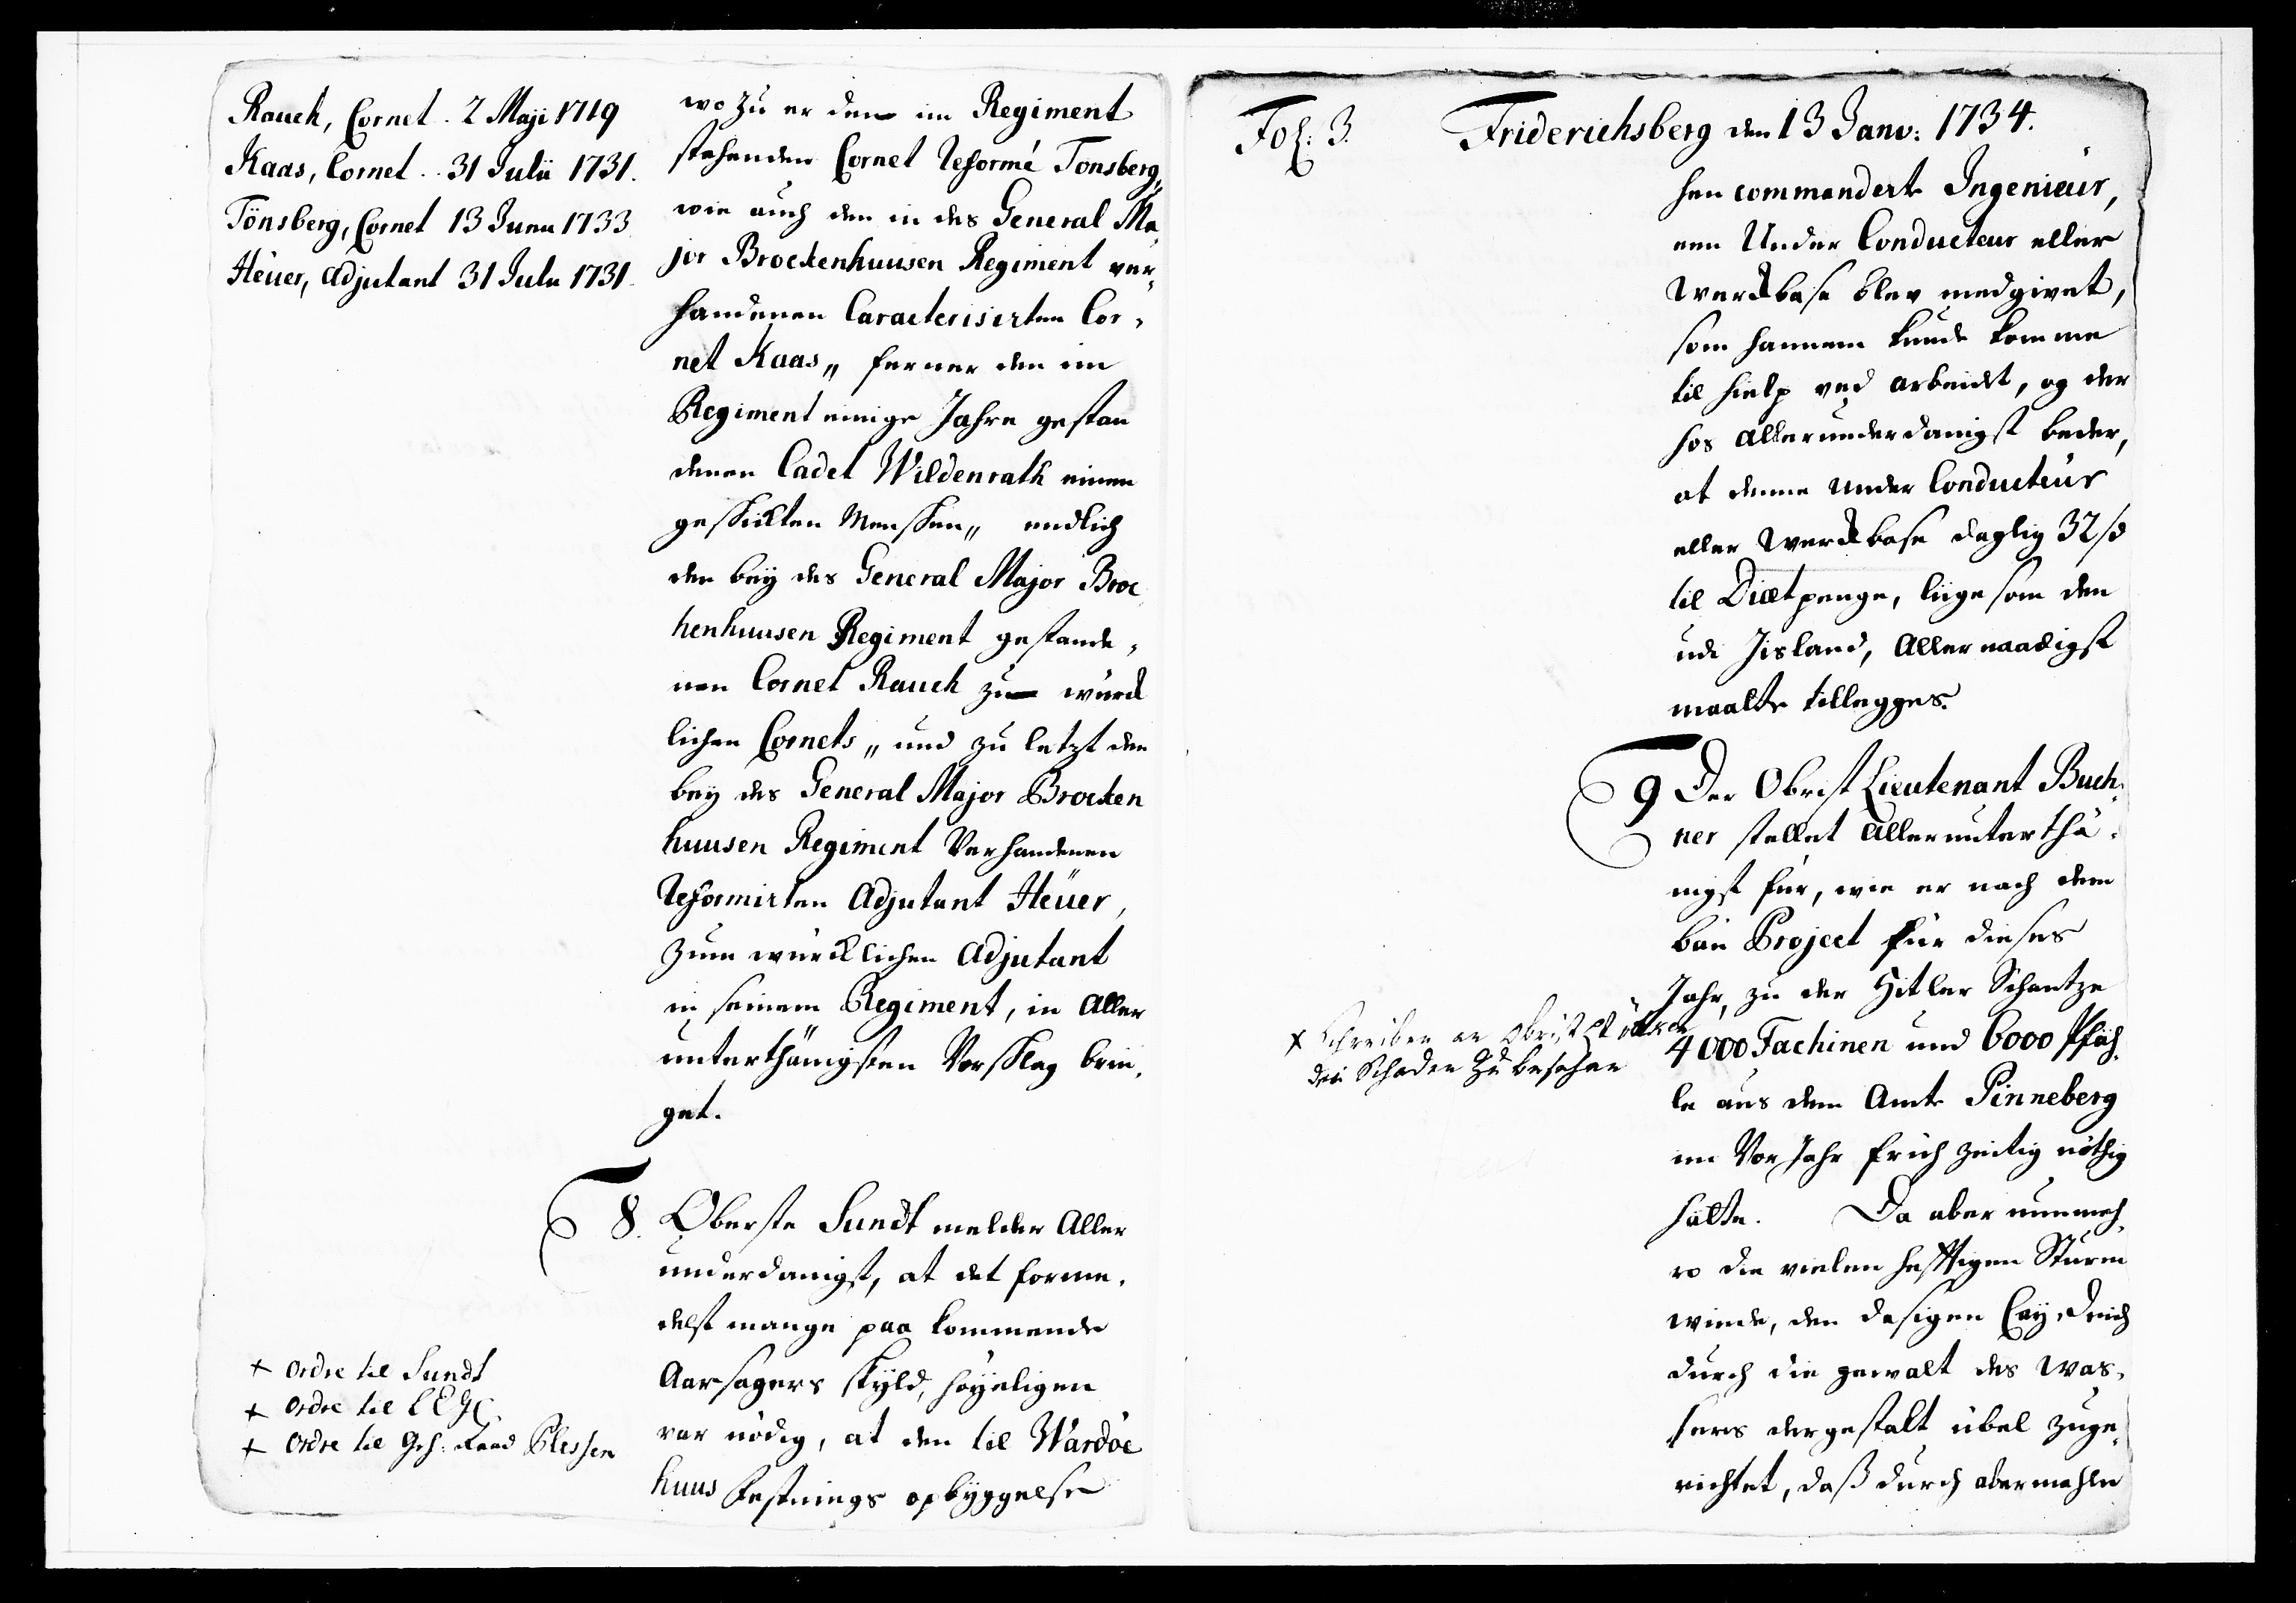 Rauch, Cornet. 2 Maji 1719
Kaas, Cornet.. 31 Julii 1731.
Tönsberg, Cornet 13 Junu 1733
Heüer, Adjutant 31 Julu 1731.
wozu er den im Regiment
stehenden Cornet Reformé Tonsberg„
wie auch den in des General Ma¬
jor Brockenhuusen Regiment ver¬
handenen Caracterisirten Cor¬
net Kaas„ ferner den im
Regiment einige Jahre gestan
denen Cadet Wildenrath einen
geschickten Menschen„ endlich
den beÿ des General Major Broc
kenhuusen Regiment gestande¬
nen Cornet Rauch zu würck
lichen Cornets„ und zu letzt den
beÿ des General Major Brocken
huusen Regiment Verhandenen
Reformirten Adjutant Heüer,
zum würcklichen Adjutant
in seinem Regiment, in Aller
unterthänigsten Vorschlag brin¬
get.
8. Oberste Sundt melder Aller
underdanigst, at det forme¬
delst mange paa kommende
Aarsagers skÿld, höÿeligen
var nödig, at den til Wardöe
huus Festnings opbÿggelse
+ Ordre til Sundt
+ Ordre til
+ Ordre til Geh: Raad Plessen
Fol: 3.
Friderichsberg den 13 Janv: 1734.
hen commanderte Ingenieur,
een Under Conducteur eller
Werckbase blev medgivet,
som hannem kunde komme
til hielp ved arbeidet, og der
hos allerunderdanigst beder,
at denne Under Conducteur
eller Werckbase daglig 32 ß
til Diætpenge, liige som den
udi Jisland, Allernaadigst
maatte tillegges.
9 Der Obrist Lieutenant Buch¬
ner stellet Allerunterthä¬
nigst für, wie er nach dem
bau Project für dieses
Jahr, zu der Hitler Schantze
4000 Fachinen und 6000 Pfäh¬
le aus dem Amte Pinneberg
im VorJahr früh zeitig nöthig
hätte. Da aber nunmeh¬
ro die vielen hefftigen Sturm
winde, den dasigen Caÿ-Deich
durch die gewalt des Was¬
sers dergestalt übel zuge¬
richtet, daß durch abermahle
+ Schreiben an Obrist
den Schaden zu besehen